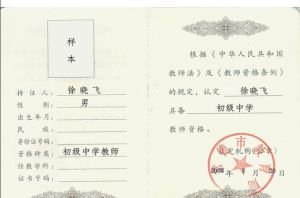 样
本
持 证 人： 徐晓飞
性 别： 男
出生年月：
民 族：
身份证号码：
资格种类： 初级中学教师
任教学科：
证书号码：
根据《中华人民共和国
教师法》及《教师资格条例》
的规定，认定 徐晓飞
具备 初级中学
教师资格。
认定机构（公章）
年 9 月 20 日